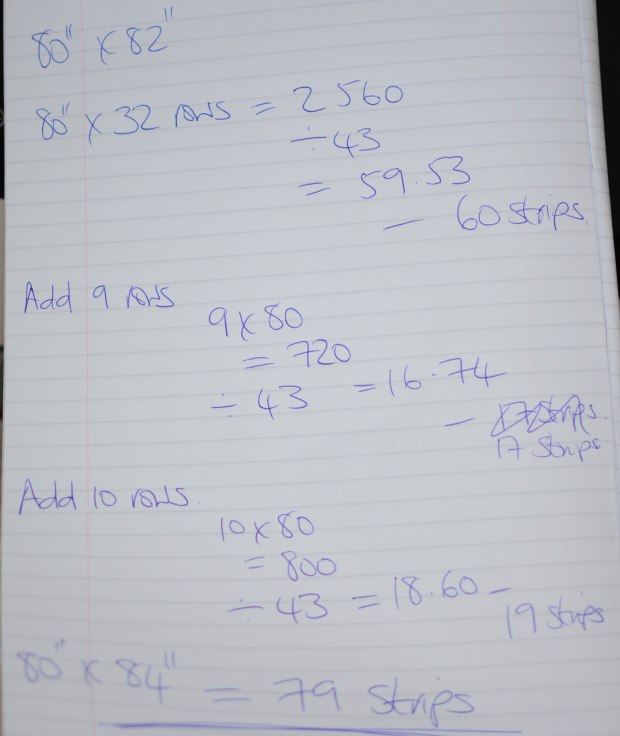 80" x 82"
80" x 32 rows = 2560
÷ 43
= 59.53
– 60 strips
Add 9 rows
9 x 80
= 720
÷ 43 = 16.74
– 17 Strips.
17 Strips
Add 10 rows.
10 x 80
= 800
÷ 43 = 18.60 –
19 Strips
80" x 84" = 79 Strips